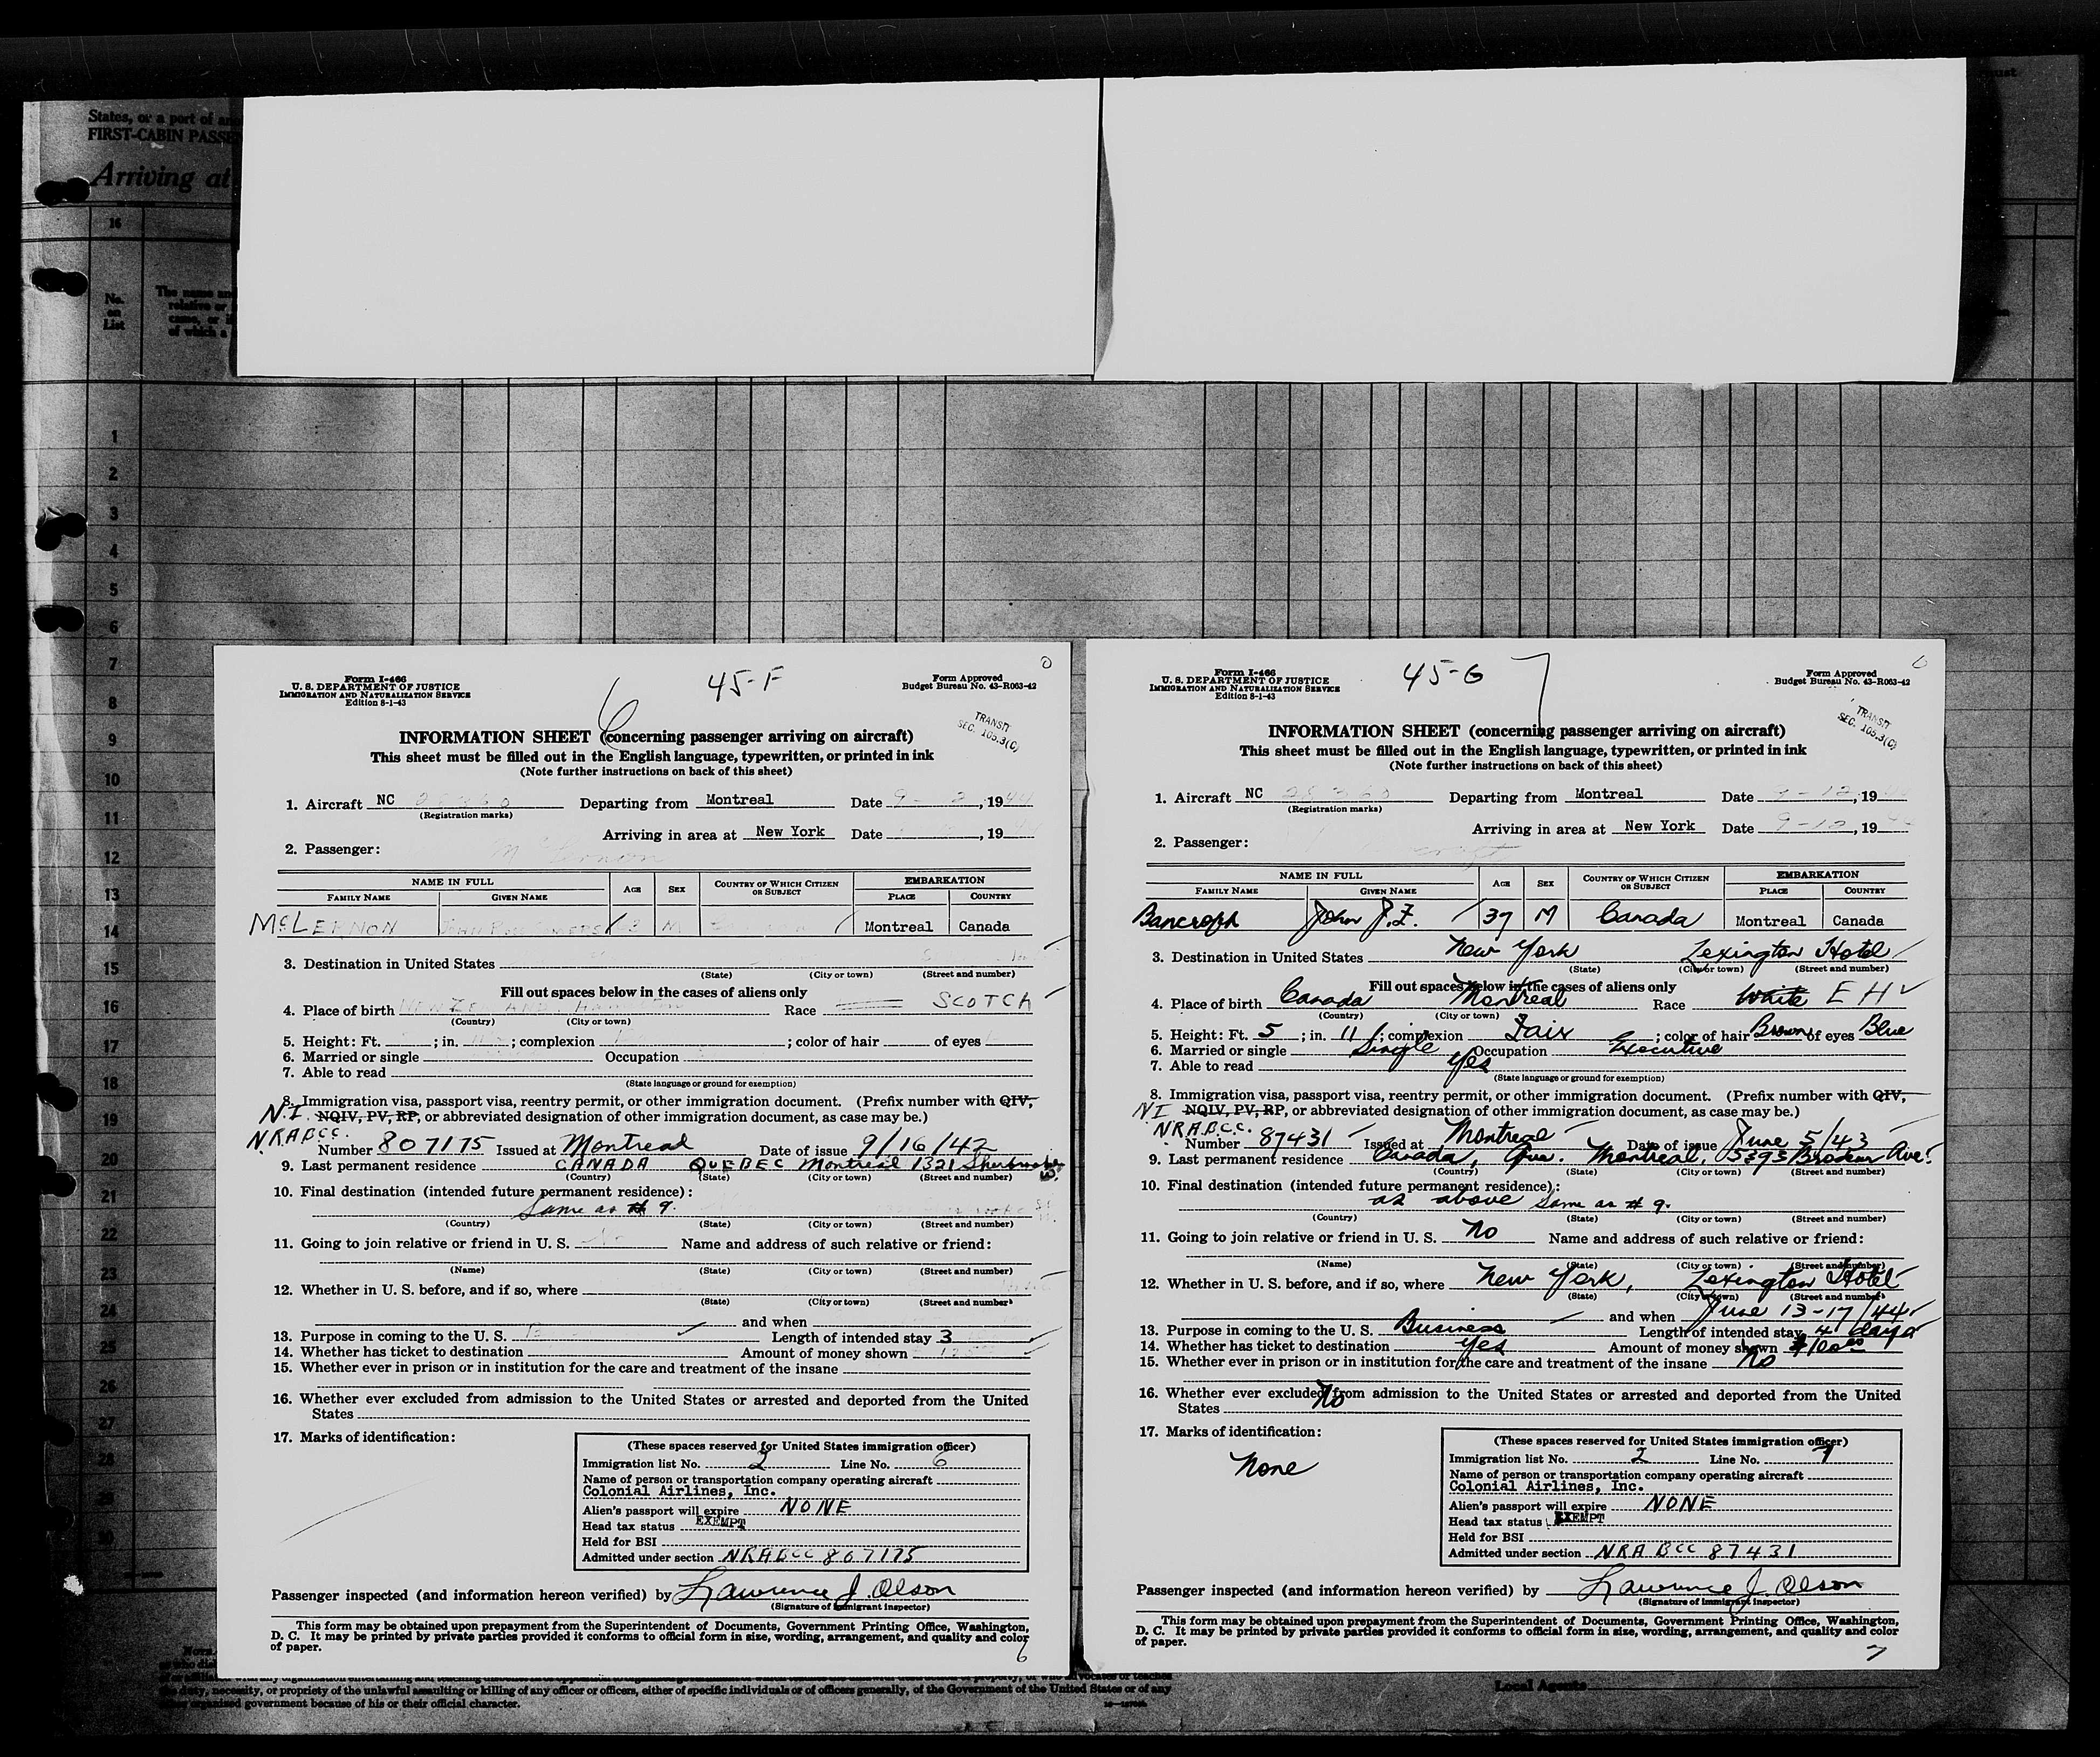 States, or a port of an
FIRST-CABIN PASSE
Arriving at
16
No.
on
List
The name an
relative or
of which a
1
2
3
4
5
6
7
8
9
10
11
12
13
14
15
16
17
18
19
20
21
22
23
24
25
26
27
28
Form I-466
U. S. DEPARTMENT OF JUSTICE
IMMIGRATION AND NATURALIZATION SERVICE
Edition 8-1-43
6
45-F
Form Approved
Budget Bureau No. 43-R063-42
TRANSIT
SEC. 105.3(C)
INFORMATION SHEET (concerning passenger arriving on aircraft)
This sheet must be filled out in the English language, typewritten, or printed in ink
(Note further instructions on back of this sheet)
1. Aircraft NC Departing from Montreal Date 9- , 1944
(Registration marks)
Arriving in area at New York Date , 19
2. Passenger: McLernon
NAME IN FULL AGE SEX COUNTRY OF WHICH CITIZEN OR SUBJECT EMBARKATION
FAMILY NAME GIVEN NAME PLACE COUNTRY
McLERNON JOHN M Montreal Canada
3. Destination in United States
(State) (City or town) (Street and number)
Fill out spaces below in the cases of aliens only
4. Place of birth NEW ZEALAND Race SCOTCH
(Country) (City or town)
5. Height: Ft. ; in. ; complexion ; color of hair of eyes
6. Married or single Occupation
7. Able to read
(State language or ground for exemption)
8. Immigration visa, passport visa, reentry permit, or other immigration document. (Prefix number with QIV,
N.I. NQIV, PV, RP, or abbreviated designation of other immigration document, as case may be.)
NRABCC.
Number 807175 Issued at Montreal Date of issue 9/16/42
9. Last permanent residence CANADA QUEBEC Montreal 1321 Sherbrooke
(Country) (State) (City or town) (Street and number)
10. Final destination (intended future permanent residence):
Same as # 9.
(Country) (State) (City or town) (Street and number)
11. Going to join relative or friend in U. S. No Name and address of such relative or friend:
(Name) (State) (City or town) (Street and number)
12. Whether in U. S. before, and if so, where
(State) (City or town) (Street and number)
and when
13. Purpose in coming to the U. S. Length of intended stay 3
14. Whether has ticket to destination Amount of money shown
15. Whether ever in prison or in institution for the care and treatment of the insane
16. Whether ever excluded from admission to the United States or arrested and deported from the United
States
17. Marks of identification:
(These spaces reserved for United States immigration officer)
Immigration list No. 2 Line No. 6
Name of person or transportation company operating aircraft
Colonial Airlines, Inc.
Alien's passport will expire NONE
Head tax status EXEMPT
Held for BSI
Admitted under section NRABCC 807175
Passenger inspected (and information hereon verified) by Lawrence J. Olson
(Signature of immigrant inspector)
This form may be obtained upon prepayment from the Superintendent of Documents, Government Printing Office, Washington,
D. C. It may be printed by private parties provided it conforms to official form in size, wording, arrangement, and quality and color
of paper.
6
Form I-466
U. S. DEPARTMENT OF JUSTICE
IMMIGRATION AND NATURALIZATION SERVICE
Edition 8-1-43
45-G
7
Form Approved
Budget Bureau No. 43-R063-42
TRANSIT
SEC. 105.3(C)
INFORMATION SHEET (concerning passenger arriving on aircraft)
This sheet must be filled out in the English language, typewritten, or printed in ink
(Note further instructions on back of this sheet)
1. Aircraft NC Departing from Montreal Date 9-12, 19
(Registration marks)
Arriving in area at New York Date 9-12, 19
2. Passenger:
NAME IN FULL AGE SEX COUNTRY OF WHICH CITIZEN OR SUBJECT EMBARKATION
FAMILY NAME GIVEN NAME PLACE COUNTRY
Bancroft John J.F. 37 M Canada Montreal Canada
3. Destination in United States New York Lexington Hotel
(State) (City or town) (Street and number)
Fill out spaces below in the cases of aliens only
4. Place of birth Canada Montreal Race White E H
(Country) (City or town)
5. Height: Ft. 5 ; in. 11 ; complexion Fair ; color of hair Brown of eyes Blue
6. Married or single Single Occupation Executive
7. Able to read Yes
(State language or ground for exemption)
8. Immigration visa, passport visa, reentry permit, or other immigration document. (Prefix number with QIV,
NI NQIV, PV, RP, or abbreviated designation of other immigration document, as case may be.)
NRABCC.
Number 87431 Issued at Montreal Date of issue June 5/43
9. Last permanent residence Canada, Que. Montreal, 5393 Brodeur Ave.
(Country) (State) (City or town) (Street and number)
10. Final destination (intended future permanent residence):
as above Same as # 9.
(Country) (State) (City or town) (Street and number)
11. Going to join relative or friend in U. S. No Name and address of such relative or friend:
(Name) (State) (City or town) (Street and number)
12. Whether in U. S. before, and if so, where New York, Lexington Hotel
(State) (City or town) (Street and number)
and when June 13-17/44
13. Purpose in coming to the U. S. Business Length of intended stay 4 days
14. Whether has ticket to destination Yes Amount of money shown $100.00
15. Whether ever in prison or in institution for the care and treatment of the insane No
16. Whether ever excluded from admission to the United States or arrested and deported from the United
States No
17. Marks of identification:
None
(These spaces reserved for United States immigration officer)
Immigration list No. 2 Line No. 7
Name of person or transportation company operating aircraft
Colonial Airlines, Inc.
Alien's passport will expire NONE
Head tax status EXEMPT
Held for BSI
Admitted under section NRABCC 87431
Passenger inspected (and information hereon verified) by Lawrence J. Olson
(Signature of immigrant inspector)
This form may be obtained upon prepayment from the Superintendent of Documents, Government Printing Office, Washington,
D. C. It may be printed by private parties provided it conforms to official form in size, wording, arrangement, and quality and color
of paper.
7
duty, necessity, or propriety of the unlawful assaulting or killing of any officer or officers, either of specific individuals or of officers generally, of the Government of the United States or of any
organized government because of his or their official character.
Local Agents